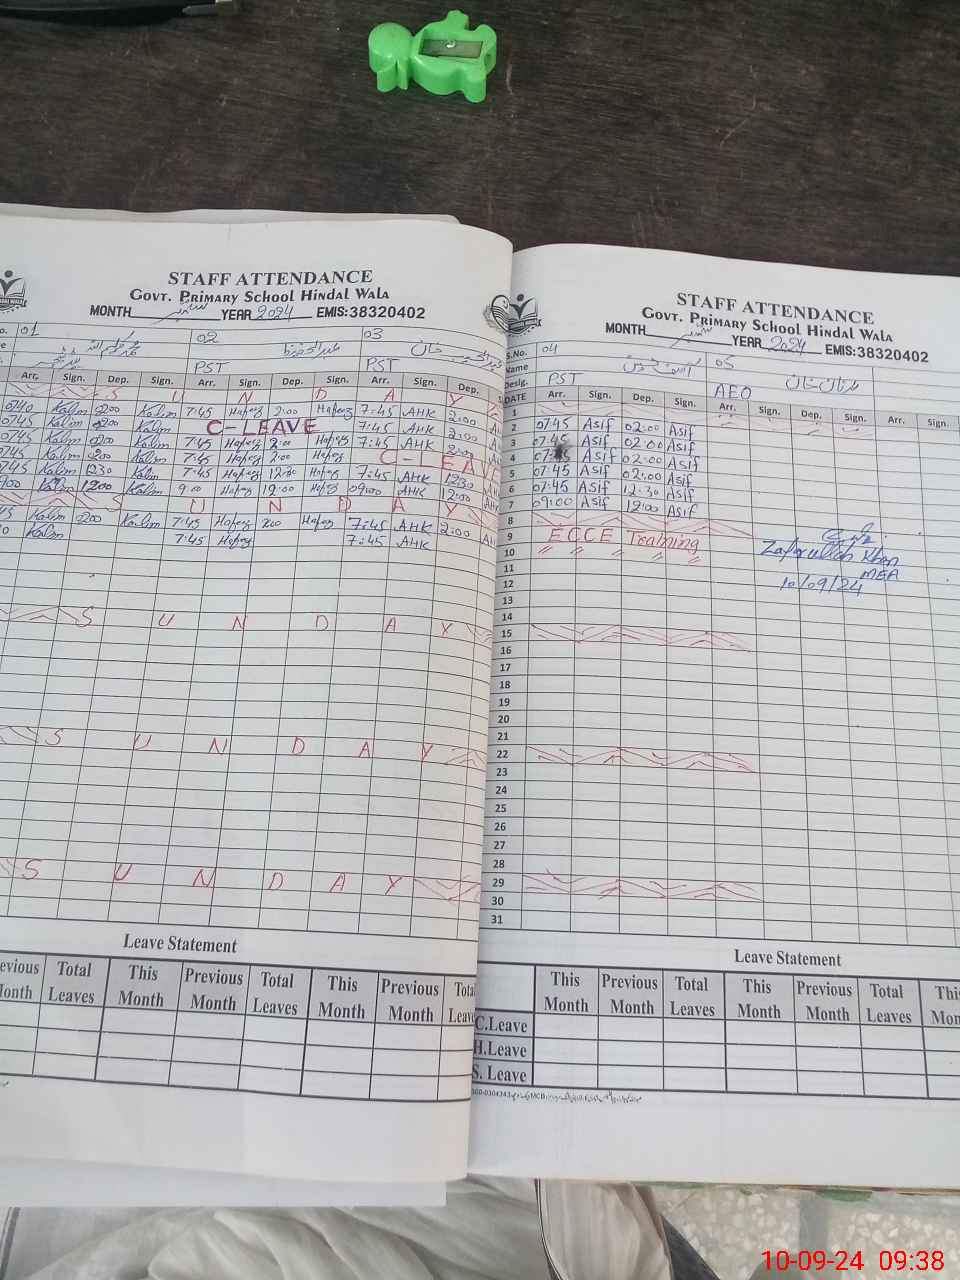 STAFF ATTENDANCE
GOVT. PRIMARY SCHOOL HINDAL WALA
MONTH ستمبر YEAR 2024 EMIS:38320402
01 02 03
PST PST
Arr. Sign. Dep. Sign. Arr. Sign. Dep. Sign. Arr. Sign. Dep.
S U N D A Y
0740 Kalim 200 Kalim 7:45 Hafeez 2:00 Hafeez 7:45 AHK 2:00
0745 Kalim 200 Kalim C-LEAVE 7:45 AHK 2:00
0745 Kalim 200 Kalim 7:45 Hafeez 2:00 Hafeez 7:45 AHK 2:00
0745 Kalim 200 Kalim 7:45 Hafeez 2:00 Hafeez C-LEAVE
0745 Kalim 1230 Kalim 7:45 Hafeez 12:30 Hafeez 7:45 AHK 1230
0900 Kalim 1200 Kalim 9:00 Hafeez 12:00 Hafeez 09:00 AHK 12:00
S U N D A Y
Kalim 200 Kalim 7:45 Hafeez 2:00 Hafeez 7:45 AHK 2:00 AH
Kalim 7:45 Hafeez 7:45 AHK
S U N D A Y
S U N D A Y
S U N D A Y
Leave Statement
Total Leaves This Month Previous Month Total Leaves This Month Previous Month
STAFF ATTENDANCE
GOVT. PRIMARY SCHOOL HINDAL WALA
MONTH ستمبر YEAR 2024 EMIS:38320402
S.No. 04 05
Name
Desig. PST AEO
DATE Arr. Sign. Dep. Sign. Arr. Sign. Dep. Sign. Arr. Sign. Dep. Sign.
1
2 07:45 Asif 02:00 Asif
3 07:45 Asif 02:00 Asif
4 07:45 Asif 02:00 Asif
5 07:45 Asif 02:00 Asif
6 07:45 Asif 12:30 Asif
7 09:00 Asif 12:00 Asif
8
9 ECCE Training
10 〃 〃 〃 〃
Zafarullah Khan
MEA
10/09/24
11
12
13
14
15
16
17
18
19
20
21
22
23
24
25
26
27
28
29
30
31
Leave Statement
This Month Previous Month Total Leaves This Month Previous Month Total Leaves
C.Leave
H.Leave
S. Leave
10-09-24 09:38